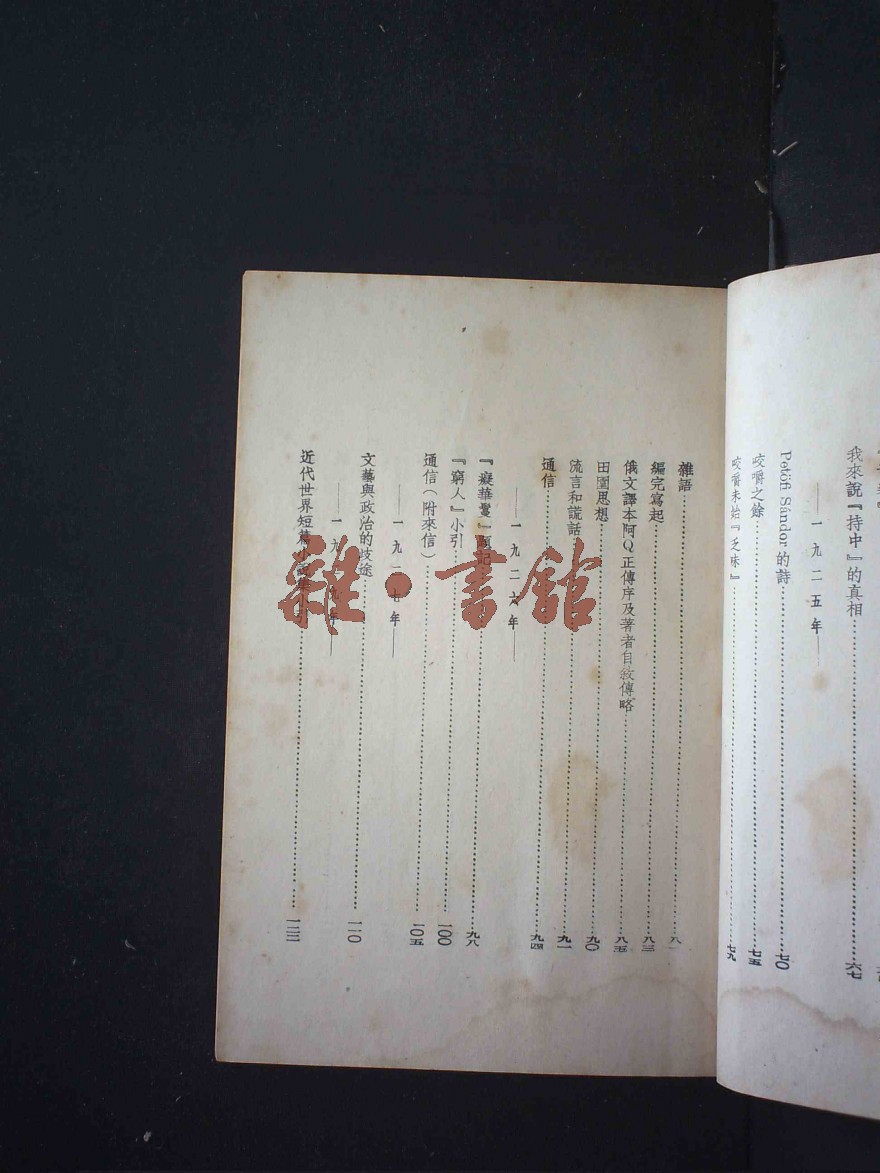 我來說『持中』的真相……六七
——一九二五年——
Petöfi Sándor 的詩……七〇
咬嚼之餘……七五
咬嚼未始『乏味』……七九
雜語……八一
編完寫起……八三
俄文譯本阿Q正傳序及著者自敘傳略……八五
田園思想……九〇
流言和謊話……九一
通信……九四
——一九二六年——
『癡華鬘』題記……九八
『窮人』小引……一〇〇
通信(附來信)……一〇五
——一九二七年——
文藝與政治的歧途……一一〇
——一九 九年——
近代世界短篇小說集小引……一二二
雜·書館